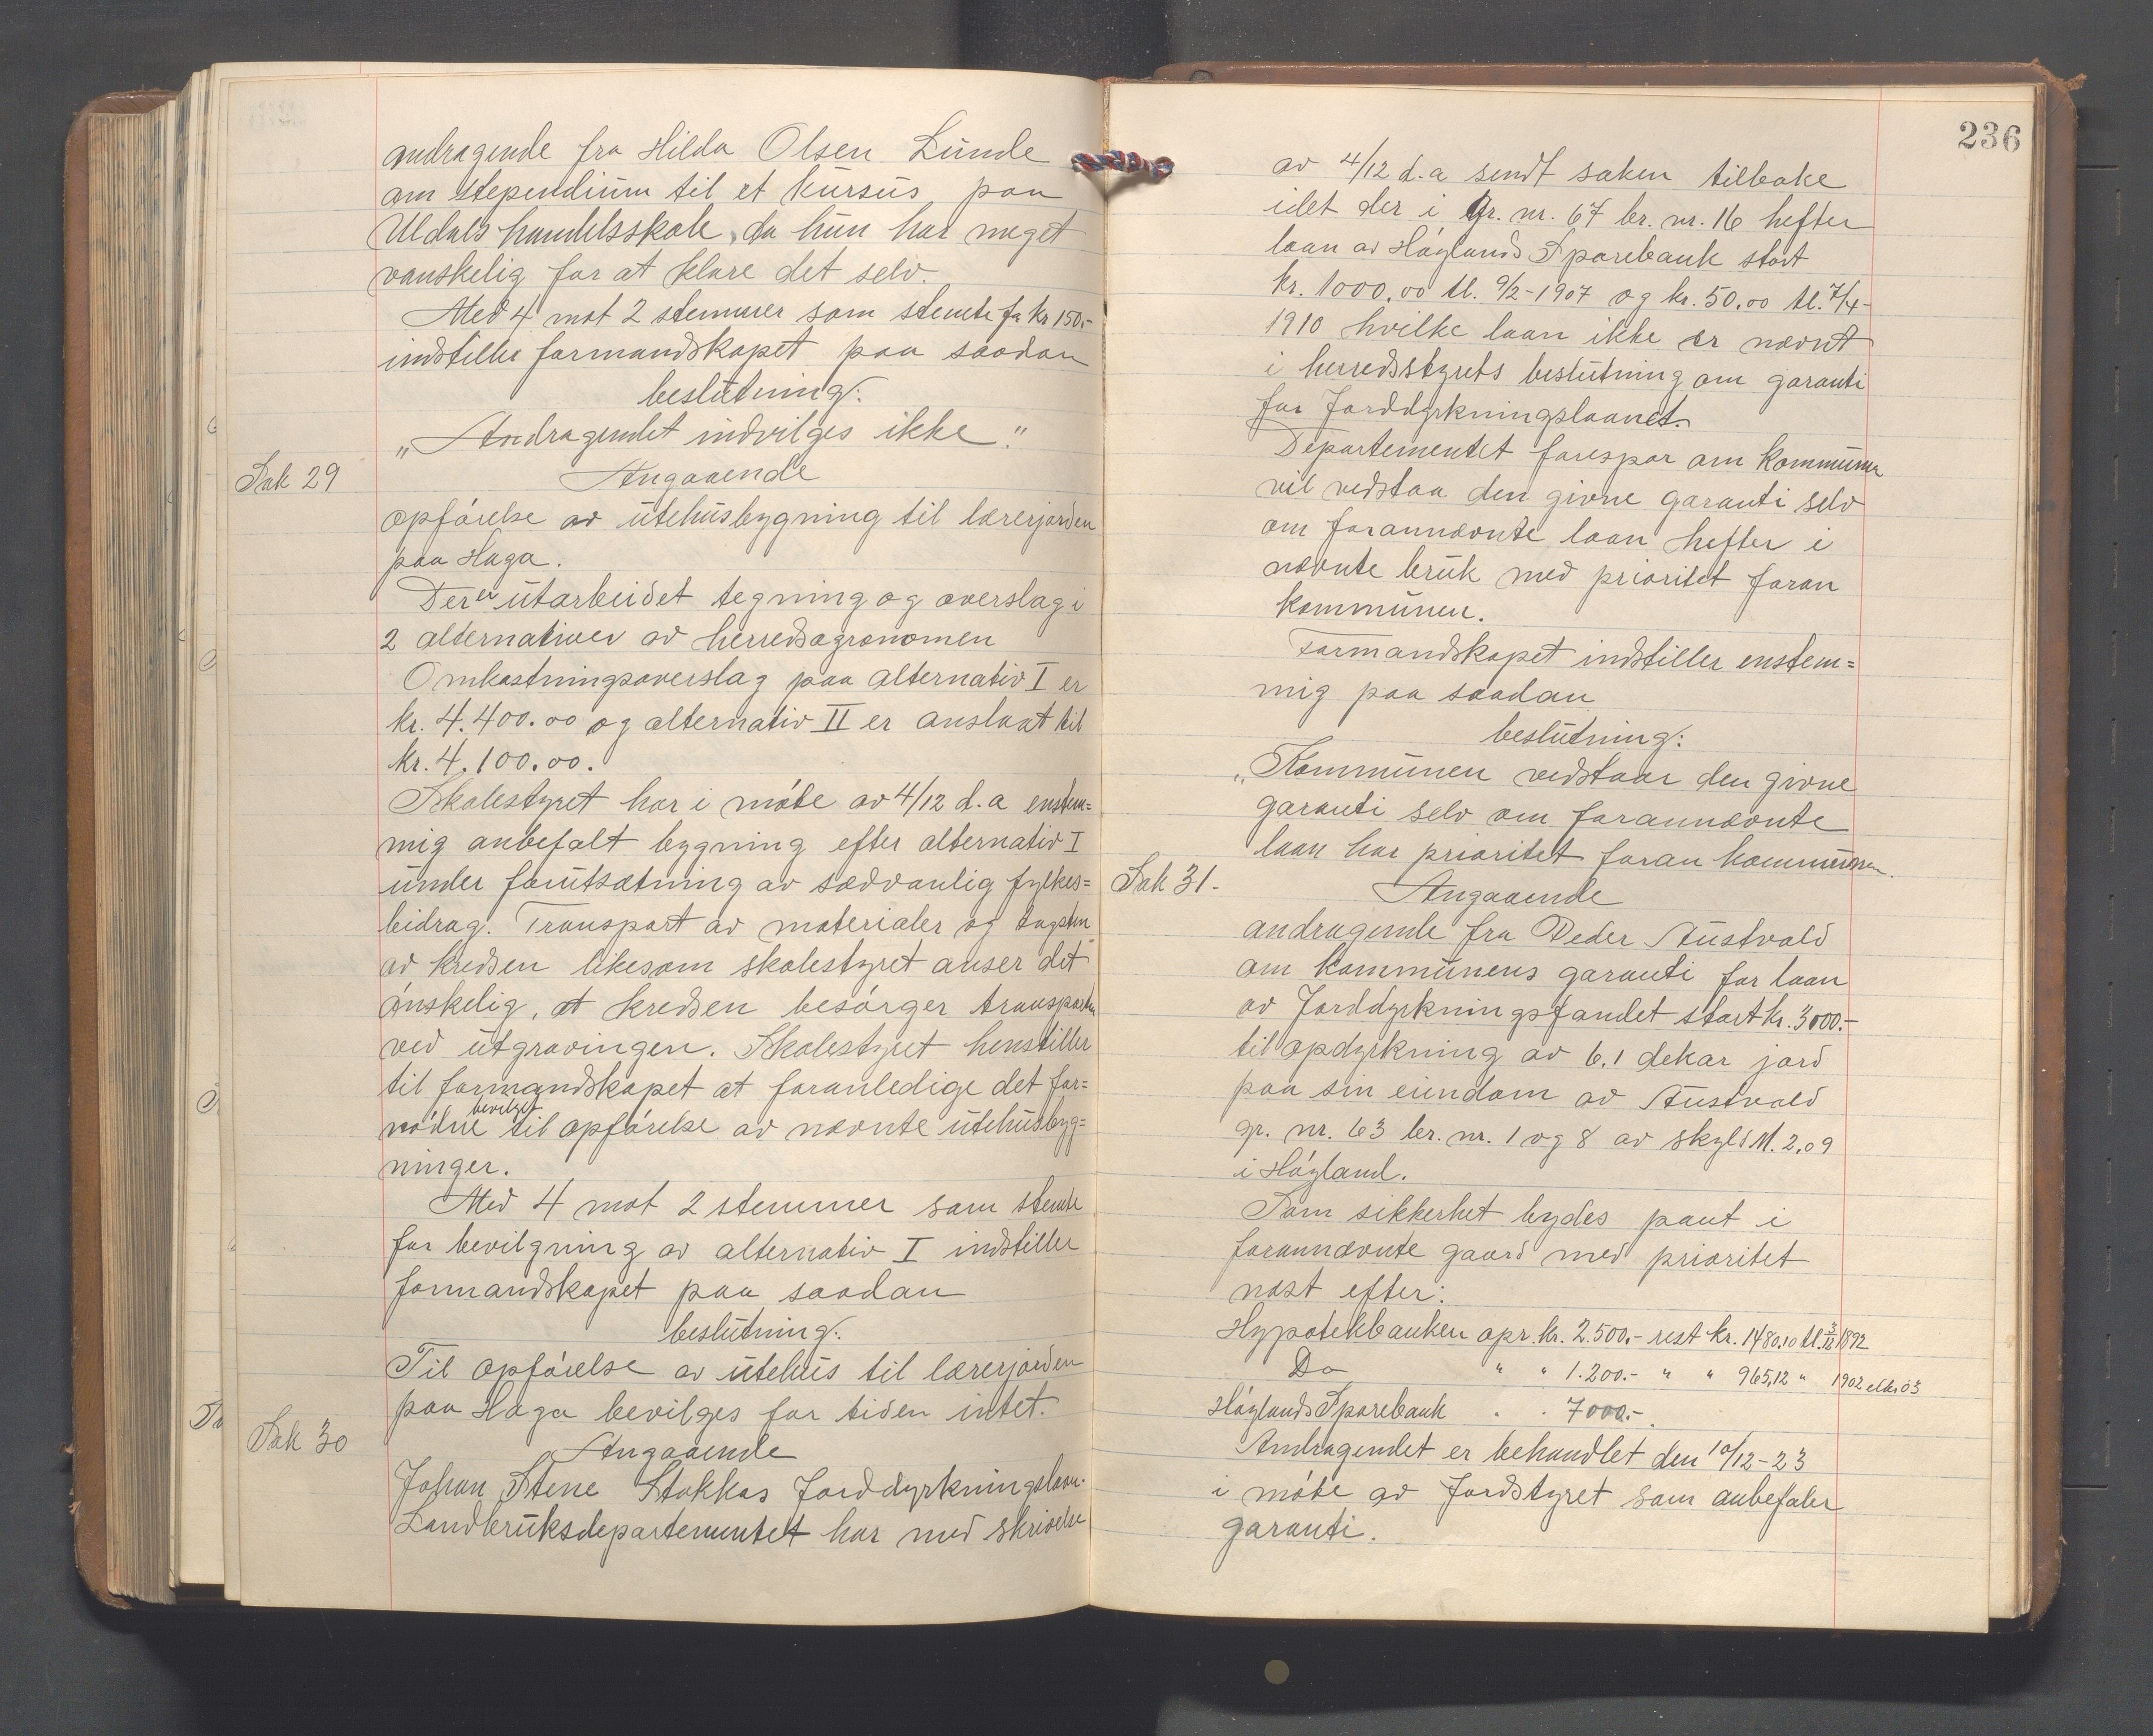 andragende fra Hilda Olsen Lunde
om stependium til et kursus paa
Uldals handelsskole, da hun har meget
vanskelig for at klare det selv.
Med 4 mot 2 stemmer som stemte for kr 150.-
indstiller formandskapet paa saadan
beslutning:
„Andragendet indvilges ikke."
Sak 29
Angaaende
opförelse av utehusbygning til lærerjorden
paa Haga.
Der er utarbeidet tegning og overslag i
2 alternativer av herredsagronomen
Omkostningsoverslag paa alternativ I er
kr. 4.400.00 og alternativ II er anslaat til
kr. 4.100.00.
Skolestyret har i möte av 4/12 d.a enstem=
mig anbefalt bygning efter alternativ I
under forutsætning av sædvanlig fylkes=
bidrag. Transport av materialer og tagsten
av kredsen likesom skolestyret anser det
önskelig, at kredsen besörger transporten
ved utgravingen. Skolestyret henstiller
til formandskapet at foranledige det for=
nödne bevilget til opförelse av nævnte utehusbyg=
ninger.
Med 4 mot 2 stemmer som stemte
for bevilgning av alternativ I indstiller
formandskapet paa saadan
beslutning:
Til opförelse av utehus til lærerjorden
paa Haga bevilges for tiden intet.
Sak 30
Angaaende
Johan Stene Stokkas Jorddyrkningslaan.
Landbruksdepartementet har med skrivelse
236
av 4/12 d.a sendt saken tilbake
idet der i Gr. nr. 67 br. nr. 16 hefter
laan av Höylands Sparebank stort
kr. 1000.00 tl. 9/2-1907 og kr. 50.00 tl. 7/4-
1910 hvilke laan ikke er nævnt
i herredsstyrets beslutning om garanti
for Jorddyrkningslaanet.
Departementet forespør om kommunen
vil vedstaa den givne garanti selv
om forannævnte laan hefter i
nævnte bruk med prioritet foran
kommunen.
Formandskapet indstiller enstem=
mig paa saadan
beslutning:
„Kommunen vedstaar den givne
garanti selv om forannævnte
laan har prioritet foran kommunen.
Sak 31.
Angaaende
andragende fra Peder Austvold
om kommunens garanti for laan
av Jorddyrkningsfondet stort kr. 3000.-
til opdyrkning av 6.1 dekar jord
paa sin eiendom av Austvold
gr. nr. 63 br. nr. 1 og 8 av skyld M. 2.09
i Höyland.
Som sikkerhet bydes pant i
forannævnte gaard med prioritet
næst efter:
Hypotekbanken opr. kr. 2.500.- rest kr. 1480.10 tl. 3/12 1892
Do " " 1.200.- " " 965,12 " 1902 elkr 03
Höylands Sparebank . . 7000.-
Andragendet er behandlet den 10/12-23
i möte av Jordstyret som anbefaler
garanti.